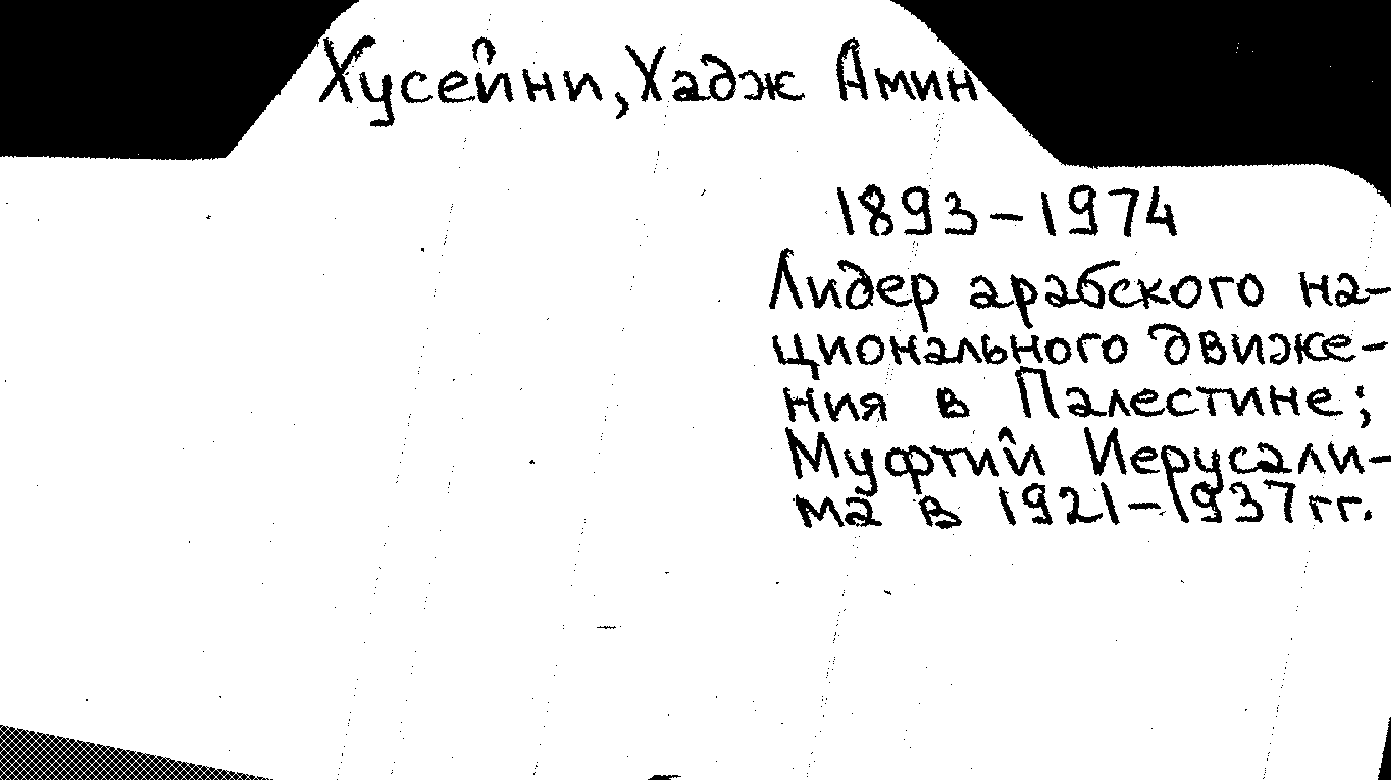 Хусейни, Хадж Амин
1893-1974
Лидер арабского на-
ционального движе-
ния в Палестине;
Муфтий Иерусали-
ма в 1921-1937 гг.